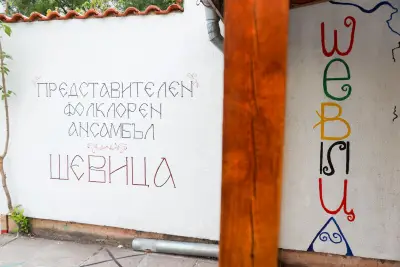 "ПРЕДСТАВИТЕЛЕН
ФОЛКЛОРЕН
АНСАМБЪЛ
ШЕВИЦА"
ШЕВИЦА